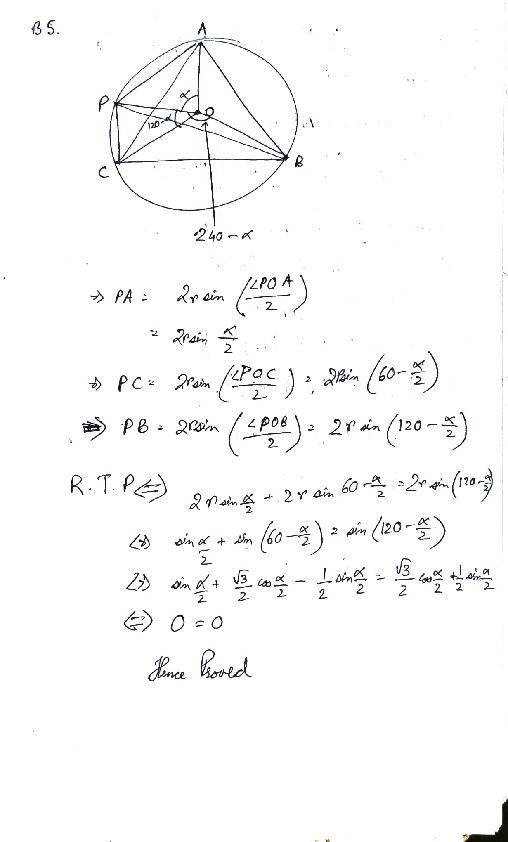 B5.
A
P
α
O
120-α
C
B
240-α
⇒ PA = 2r sin (∠POA/2)
= 2r sin α/2
⇒ PC = 2r sin (∠POC/2) = 2r sin (60-α/2)
⇒ PB = 2r sin (∠POB/2) = 2r sin (120-α/2)
R.T.P ⇔ 2r sin α/2 + 2r sin 60-α/2 = 2r sin (120-α/2)
⇔ sin α/2 + sin (60-α/2) = sin (120-α/2)
⇔ sin α/2 + √3/2 cos α/2 - 1/2 sin α/2 = √3/2 cos α/2 + 1/2 sin α/2
⇔ 0 = 0
Hence Proved